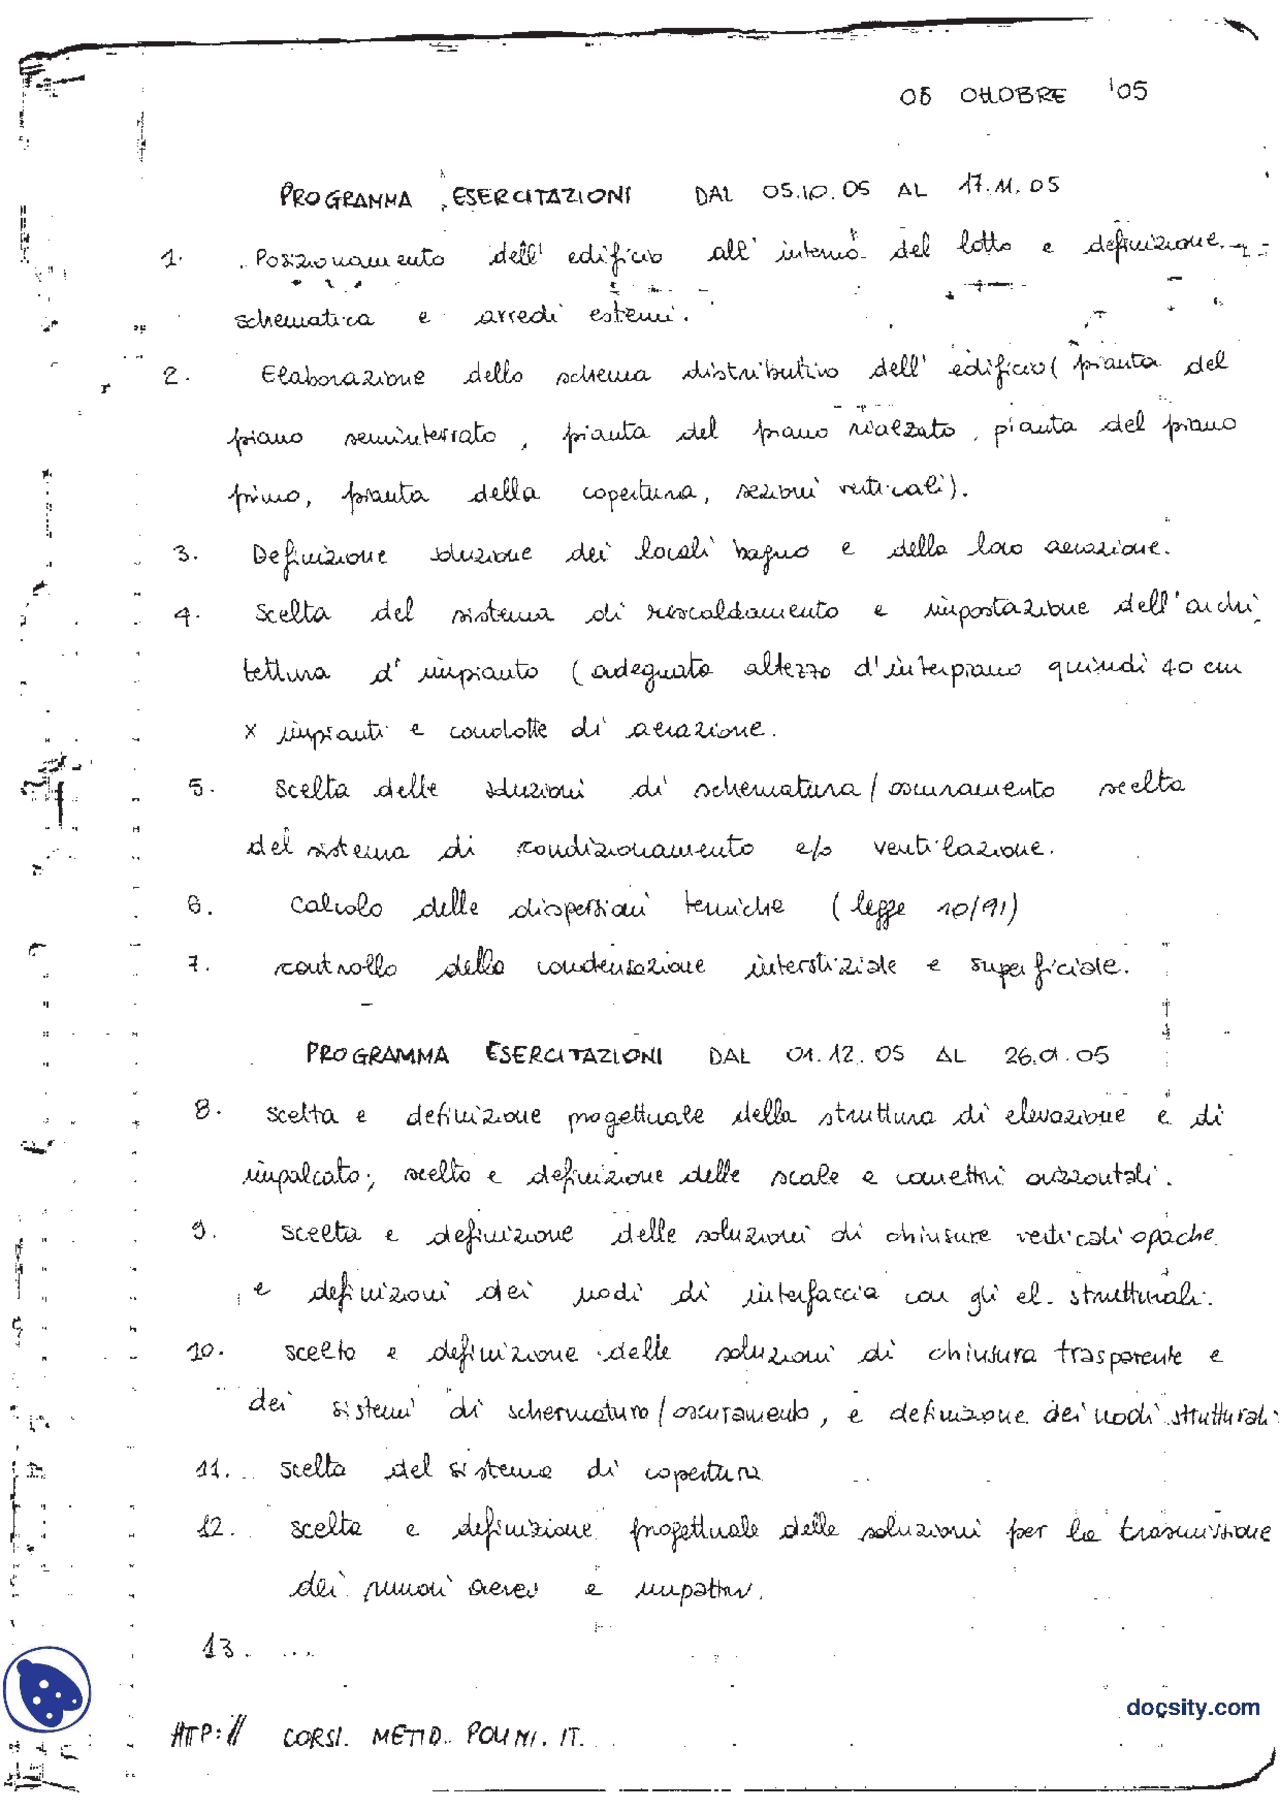 06 OTTOBRE '05
PROGRAMMA ESERCITAZIONI DAL 05.10.05 AL 17.11.05
1. Posizionamento dell'edificio all'interno del lotto e definizione
schematica e arredi esterni.
2. Elaborazione dello schema distributivo dell'edificio (pianta del
piano seminterrato, pianta del piano rialzato, pianta del piano
primo, pianta della copertura, sezioni verticali).
3. Definizione soluzione dei locali bagno e della loro aerazione.
4. Scelta del sistema di riscaldamento e impostazione dell'archi
tettura d'impianto (adeguata altezza d'interpiano quindi 40 cm
x impianti e condotte di aerazione.
5. Scelta delle soluzioni di schermatura/oscuramento scelta
del sistema di condizionamento e/o ventilazione.
6. Calcolo delle dispersioni termiche (legge 10/91)
7. controllo della condensazione interstiziale e superficiale.
PROGRAMMA ESERCITAZIONI DAL 01.12.05 AL 26.01.05
8. scelta e definizione progettuale della struttura di elevazione e di
impalcato; scelta e definizione delle scale e connettivi orizzontali.
9. scelta e definizione delle soluzioni di chiusure verticali opache
e definizioni dei nodi di interfaccia con gli el. strutturali.
10. scelta e definizione delle soluzioni di chiusura trasparente e
dei sistemi di schermatura/oscuramento, e definizione dei nodi strutturali
11. scelta del sistema di copertura
12. scelta e definizione progettuale delle soluzioni per la trasmissione
dei rumori aerei e impattivi.
13. ...
HTTP:// CORSI. METID. POLIMI. IT.
docsity.com